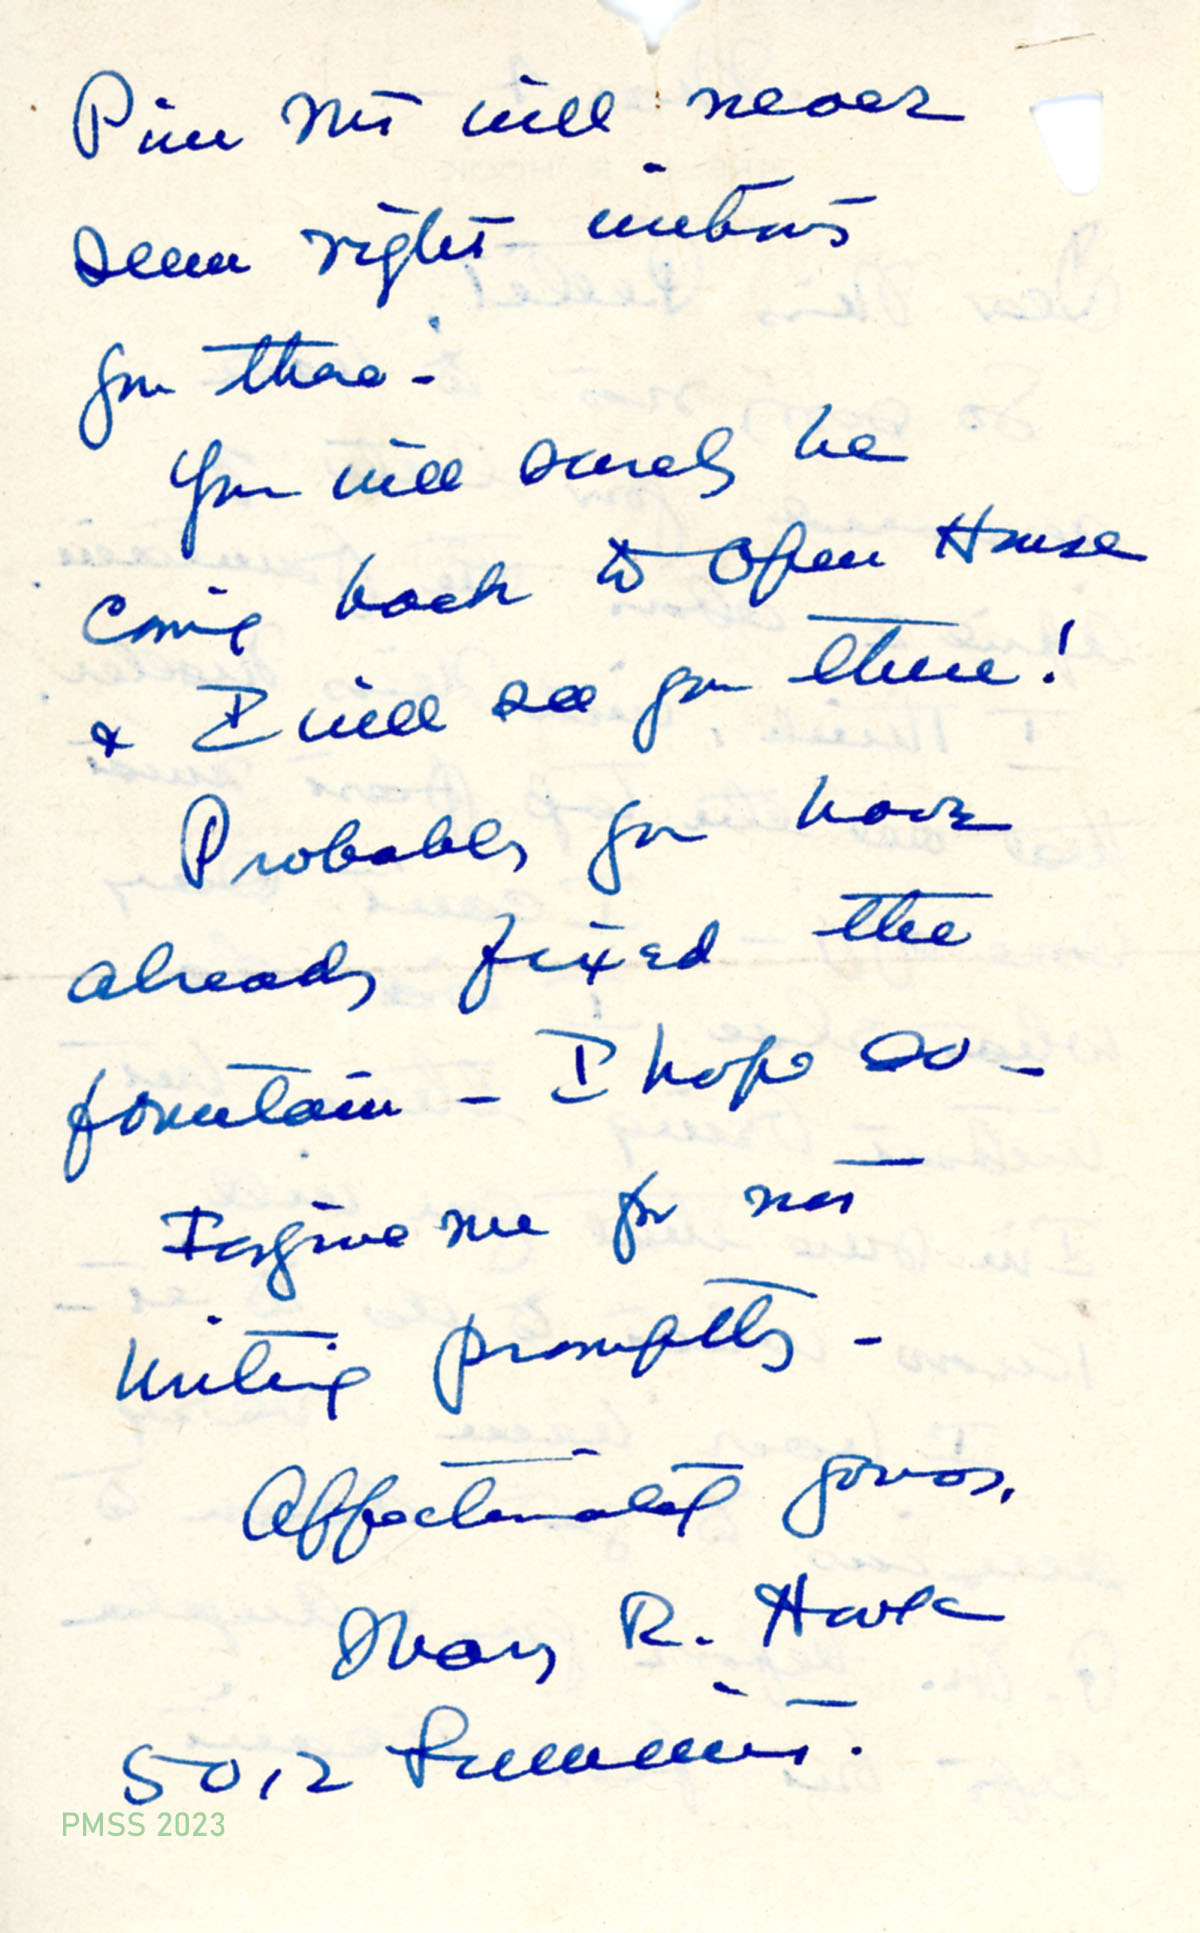 Pine Mt will never
seem right without
you there -
You will surely be
coming back to Open House
& I will see you there!
Probably you have
already fixed the
fountain - I hope so -
Forgive me for not
writing promptly -
Affectionately yours,
Mary R.
5012 Summit.
PMSS 2023